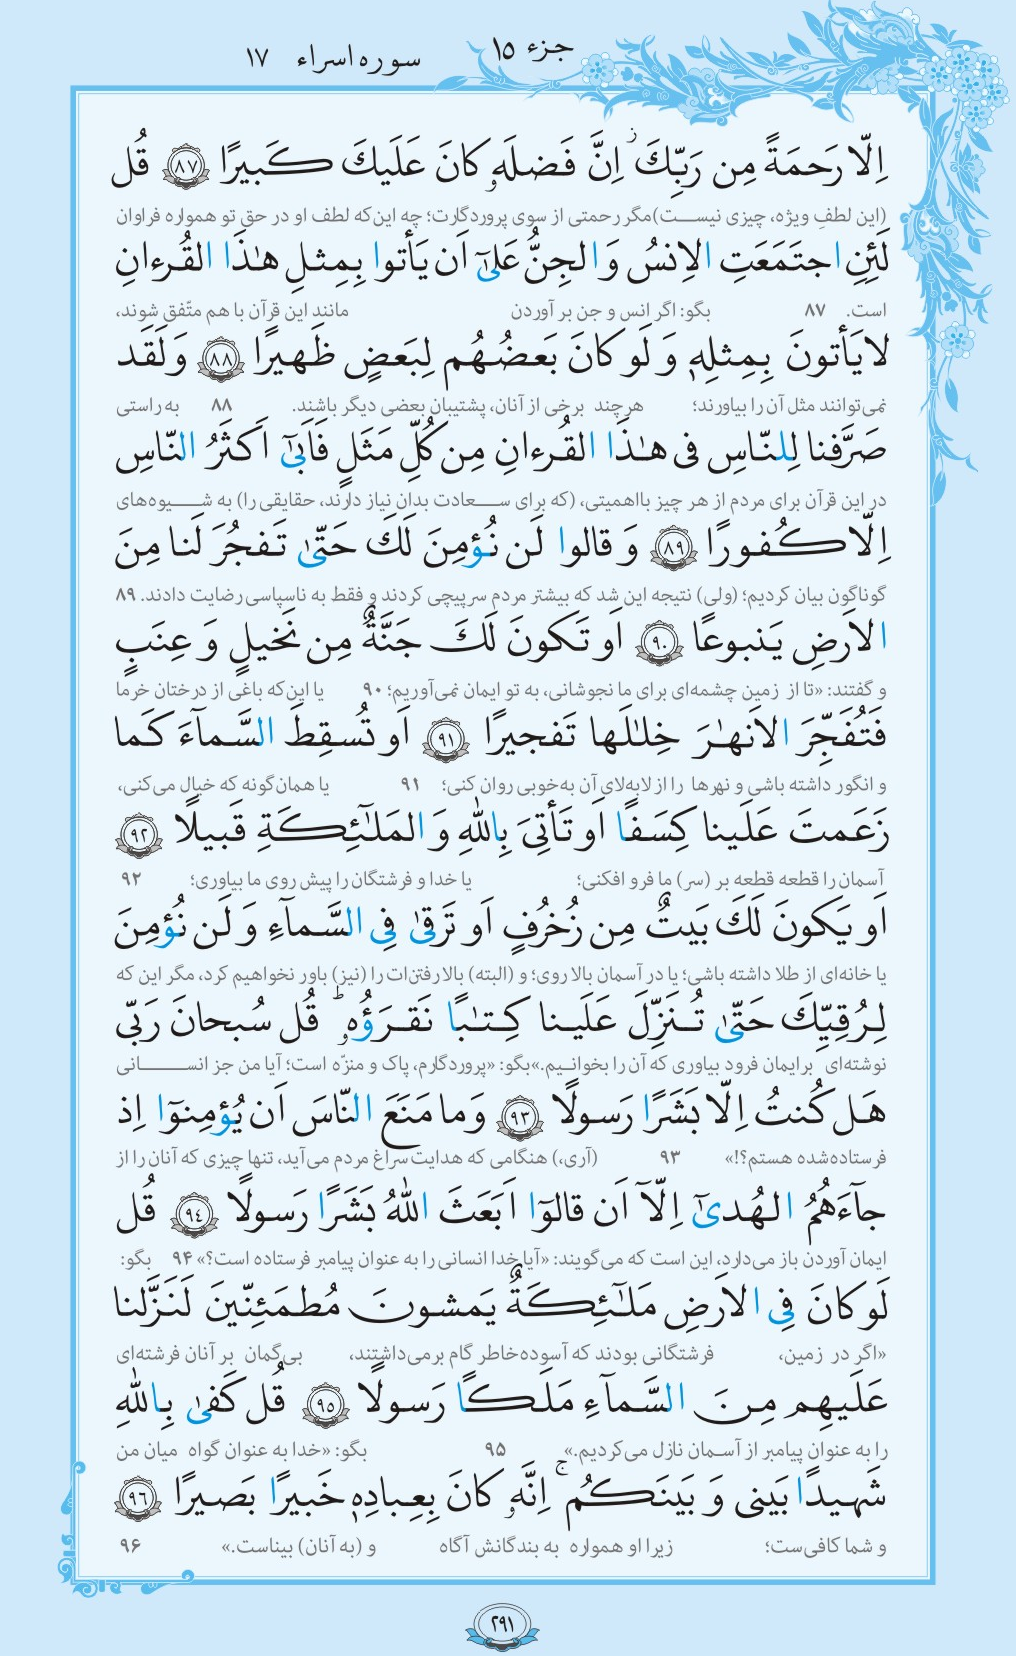 جزء ۱۵
سوره اسراء ۱۷
اِلّا رَحمَةً مِن رَبِّكَ ۚ اِنَّ فَضلَهٗ كانَ عَلَيكَ كَبيرًا ﴿۸۷﴾ قُل
(این لطفِ ویژه، چیزی نیست) مگر رحمتی از سوی پروردگارت؛ چه این‌که لطف او در حق تو همواره فراوان
لَئِنِ اجتَمَعَتِ الاِنسُ وَ الجِنُّ عَلىٰٓ اَن يَأتوا بِمِثلِ هٰذَا القُرءانِ
است. ۸۷ بگو: اگر انس و جن بر آوردن مانند این قرآن با هم متّفق شوند،
لا يَأتونَ بِمِثلِهٖ وَ لَو كانَ بَعضُهُم لِبَعضٍ ظَهيرًا ﴿۸۸﴾ وَ لَقَد
نمی‌توانند مثل آن را بیاورند؛ هرچند برخی از آنان، پشتیبان بعضی دیگر باشند. ۸۸ به‌راستی
صَرَّفنا لِلنّاسِ فى هٰذَا القُرءانِ مِن كُلِّ مَثَلٍ فَاَبىٰٓ اَكثَرُ النّاسِ
در این قرآن برای مردم از هر چیز بااهمیتی، (که برای سعادت بدان نیاز دارند، حقایقی را) به شیوه‌های
اِلّا كُفورًا ﴿۸۹﴾ وَ قالوا لَن نُؤمِنَ لَكَ حَتّىٰ تَفجُرَ لَنا مِنَ
گوناگون بیان کردیم؛ (ولی) نتیجه این شد که بیشتر مردم سرپیچی کردند و فقط به ناسپاسی رضایت دادند. ۸۹
الاَرضِ يَنبوعًا ﴿۹۰﴾ اَو تَكونَ لَكَ جَنَّةٌ مِن نَخيلٍ وَ عِنَبٍ
و گفتند: «تا از زمین چشمه‌ای برای ما نجوشانی، به تو ایمان نمی‌آوریم؛ ۹۰ یا این‌که باغی از درختان خرما
فَتُفَجِّرَ الاَنهٰرَ خِلٰلَها تَفجيرًا ﴿۹۱﴾ اَو تُسقِطَ السَّمآءَ كَما
و انگور داشته باشی و نهرها را از لابه‌لای آن به‌خوبی روان کنی؛ ۹۱ یا همان‌گونه که خیال می‌کنی،
زَعَمتَ عَلَينا كِسَفًا اَو تَأتِىَ بِاللهِ وَ المَلٰٓئِكَةِ قَبيلًا ﴿۹۲﴾
آسمان را قطعه قطعه بر (سر) ما فرو افکنی؛ یا خدا و فرشتگان را پیش روی ما بیاوری؛ ۹۲
اَو يَكونَ لَكَ بَيتٌ مِن زُخرُفٍ اَو تَرقىٰ فِى السَّمآءِ وَ لَن نُؤمِنَ
یا خانه‌ای از طلا داشته باشی؛ یا در آسمان بالا روی؛ و (البته) بالا رفتن‌ات را (نیز) باور نخواهیم کرد، مگر این که
لِرُقِيِّكَ حَتّىٰ تُنَزِّلَ عَلَينا كِتٰبًا نَقرَؤُهٗ ؕ قُل سُبحانَ رَبّى
نوشته‌ای برایمان فرود بیاوری که آن را بخوانیم.» بگو: «پروردگارم، پاک و منزّه است؛ آیا من جز انسانی
هَل كُنتُ اِلّا بَشَرًا رَسولًا ﴿۹۳﴾ وَ ما مَنَعَ النّاسَ اَن يُؤمِنوٓا اِذ
فرستاده‌شده هستم؟!» ۹۳ (آری،) هنگامی که هدایت سراغ مردم می‌آید، تنها چیزی که آنان را از
جآءَهُمُ الهُدىٰٓ اِلّآ اَن قالوٓا اَبَعَثَ اللهُ بَشَرًا رَسولًا ﴿۹۴﴾ قُل
ایمان آوردن باز می‌دارد، این است که می‌گویند: «آیا خدا انسانی را به عنوان پیامبر فرستاده است؟» ۹۴ بگو:
لَو كانَ فِى الاَرضِ مَلٰٓئِكَةٌ يَمشونَ مُطمَئِنّينَ لَنَزَّلنا
«اگر در زمین، فرشتگانی بودند که آسوده‌خاطر گام برمی‌داشتند، بی‌گمان بر آنان فرشته‌ای
عَلَيهِم مِنَ السَّمآءِ مَلَكًا رَسولًا ﴿۹۵﴾ قُل كَفىٰ بِاللهِ
را به عنوان پیامبر از آسمان نازل می‌کردیم.» ۹۵ بگو: «خدا به عنوان گواه میان من
شَهيدًا بَينى وَ بَينَكُم ۚ اِنَّهٗ كانَ بِعِبادِهٖ خَبيرًا بَصيرًا ﴿۹۶﴾
و شما کافی‌ست؛ زیرا او همواره به بندگانش آگاه و (به آنان) بیناست.» ۹۶
۲۹۱